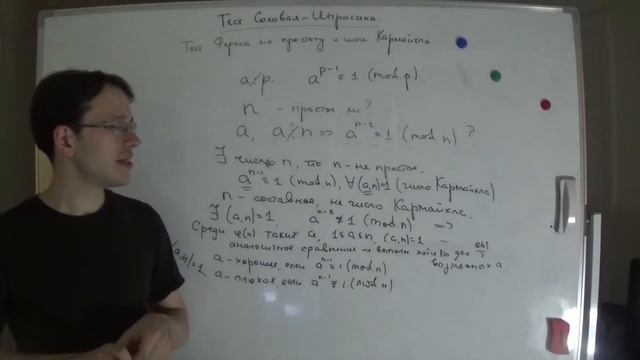 Тест Соловая-Штрасана.
Тест Ферма на простоту и числа Кармайкла.
a⁒p. a^{p-1} ≡ 1 (mod p).
n - простое ли?
a, a⁒n ⇒ a^{n-1} ≡ 1 (mod n) ?
∃ число n, что n - не простое.
a^{n-1} ≡ 1 (mod n), ∀(a,n)=1 (число Кармайкла)
n - составное, не число Кармайкла.
∃ (a,n)=1, a^{n-1} ≢ 1 (mod n) ⇒
Среди φ(n) таких a, 1≤a≤n, (a,n)=1 -
аналогичное сравнение и выполн хотя бы для φ(n)/2
возможных a
(a,n)=1, a - хорошее, если a^{n-1} ≡ 1 (mod n)
a - плохое, если a^{n-1} ≢ 1 (mod n)